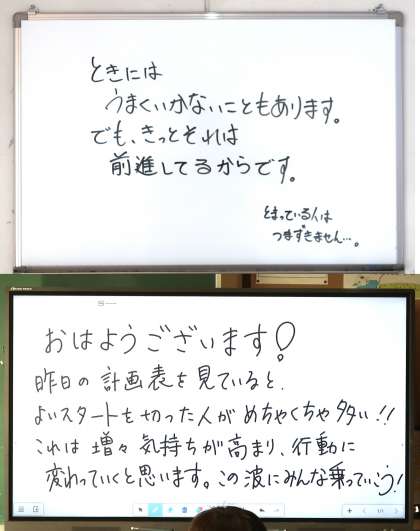 ときには
うまくいかないこともあります。
でも、きっとそれは
前進してるからです。
とまっている人は
つまずきません…。
おはようございます!
昨日の計画表を見ていると、
よいスタートを切った人がめちゃくちゃ多い!!
これは増々気持ちが高まり、行動に
変わっていくと思います。この波にみんな乗っていこう!